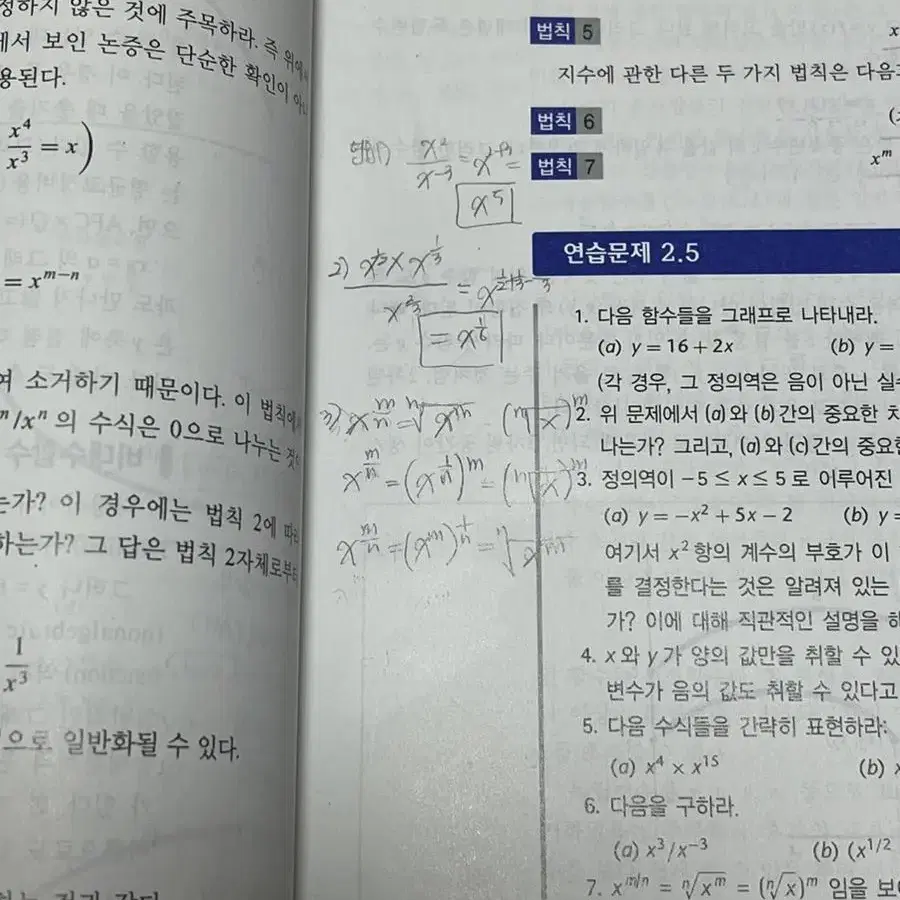 정하지 않은 것에 주목하라. 즉 위에서
에서 보인 논증은 단순한 확인이 아니
용된다.
x⁴/x³ = x)
= x^{m−n}
여 소거하기 때문이다. 이 법칙에서
ⁿ/xⁿ 의 수식은 0으로 나누는 것
는가? 이 경우에는 법칙 2에 따라
하는가? 그 답은 법칙 2자체로부터
1/x³
으로 일반화될 수 있다.
x²/x⁻³ =
x⁵
2) x^{1/2} × x^{1/3} / x^{2/3}
= x^{1/6}
3) x^{m/n} = ⁿ√x^m (ⁿ√x)^m
x^{m/n} = (x^{1/n})^m = (ⁿ√x)^m
x^{m/n} = (x^m)^{1/n} = ⁿ√
법칙 5 x
지수에 관한 다른 두 가지 법칙은 다음
법칙 6 (
법칙 7 x^m
연습문제 2.5
1. 다음 함수들을 그래프로 나타내라.
(a) y = 16 + 2x (b) y =
(각 경우, 그 정의역은 음이 아닌 실수
2. 위 문제에서 (a)와 (b)간의 중요한 차
나는가? 그리고, (a)와 (c)간의 중요한
3. 정의역이 −5 ≤ x ≤ 5 로 이루어진
(a) y = −x² + 5x − 2 (b) y =
여기서 x² 항의 계수의 부호가 이
를 결정한다는 것은 알려져 있는
가? 이에 대해 직관적인 설명을 하
4. x 와 y 가 양의 값만을 취할 수 있
변수가 음의 값도 취할 수 있다고
5. 다음 수식들을 간략히 표현하라:
(a) x⁴ × x¹⁵ (b) x
6. 다음을 구하라.
(a) x³/x⁻³ (b) (x^{1/2}
7. x^{m/n} = ⁿ√x^m = (ⁿ√x)^m 임을 보여